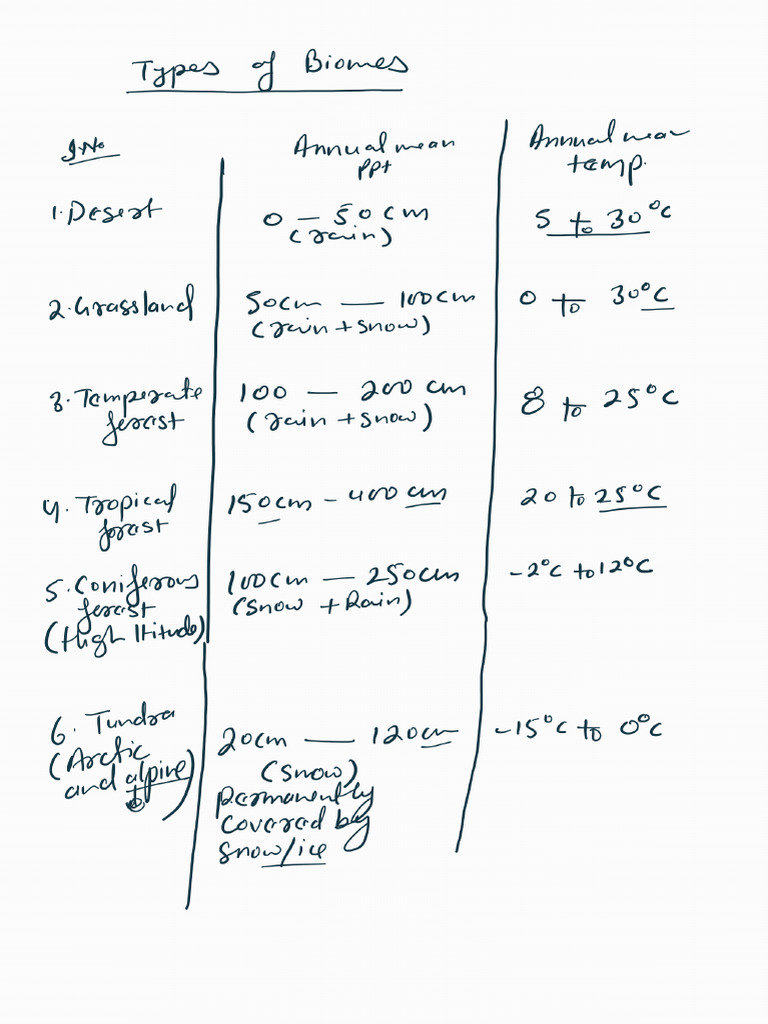 Types of Biomes
S.No
Annual mean
ppt
Annual mean
temp.
1. Desert
0 — 50 cm
(rain)
5 to 30°C
2. Grassland
50cm — 100cm
(rain + snow)
0 to 30°C
3. Temperate
forest
100 — 200 cm
(rain + snow)
8 to 25°C
4. Tropical
forest
150cm - 400 cm
20 to 25°C
5. Coniferous
forest
(High ltitude)
100cm — 250cm
(Snow + Rain)
-2°C to 12°C
6. Tundra
(Arctic
and alpine)
20cm — 120cm
(snow)
permanently
covered by
snow/ice
-15°C to 0°C